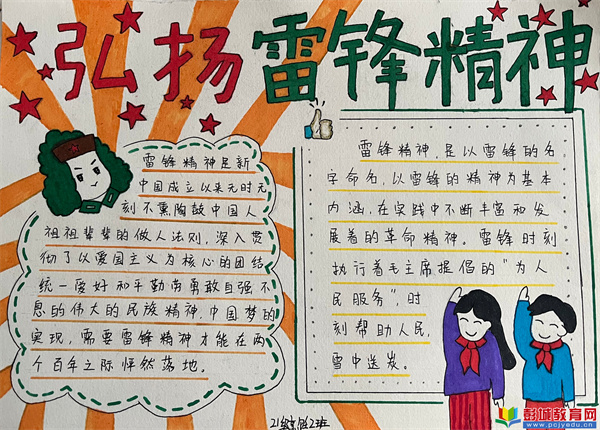 弘扬雷锋精神
雷锋精神是新
中国成立以来无时无
刻不熏陶鼓中国人
祖祖辈辈的做人法则,深入贯
彻了以爱国主义为核心的团结
统一爱好和平勤劳勇敢自强不
息的伟大的民族精神,中国梦的
实现,需要雷锋精神才能在两
个百年之际怦然落地。
雷锋精神,是以雷锋的名
字命名,以雷锋的精神为基本
内涵,在实践中不断丰富和发
展着的革命精神。雷锋时刻
执行着毛主席提倡的“为人
民服务”,时
刻帮助人民,
雪中送炭。
2班
彭城教育网
www.pcjyedu.cn